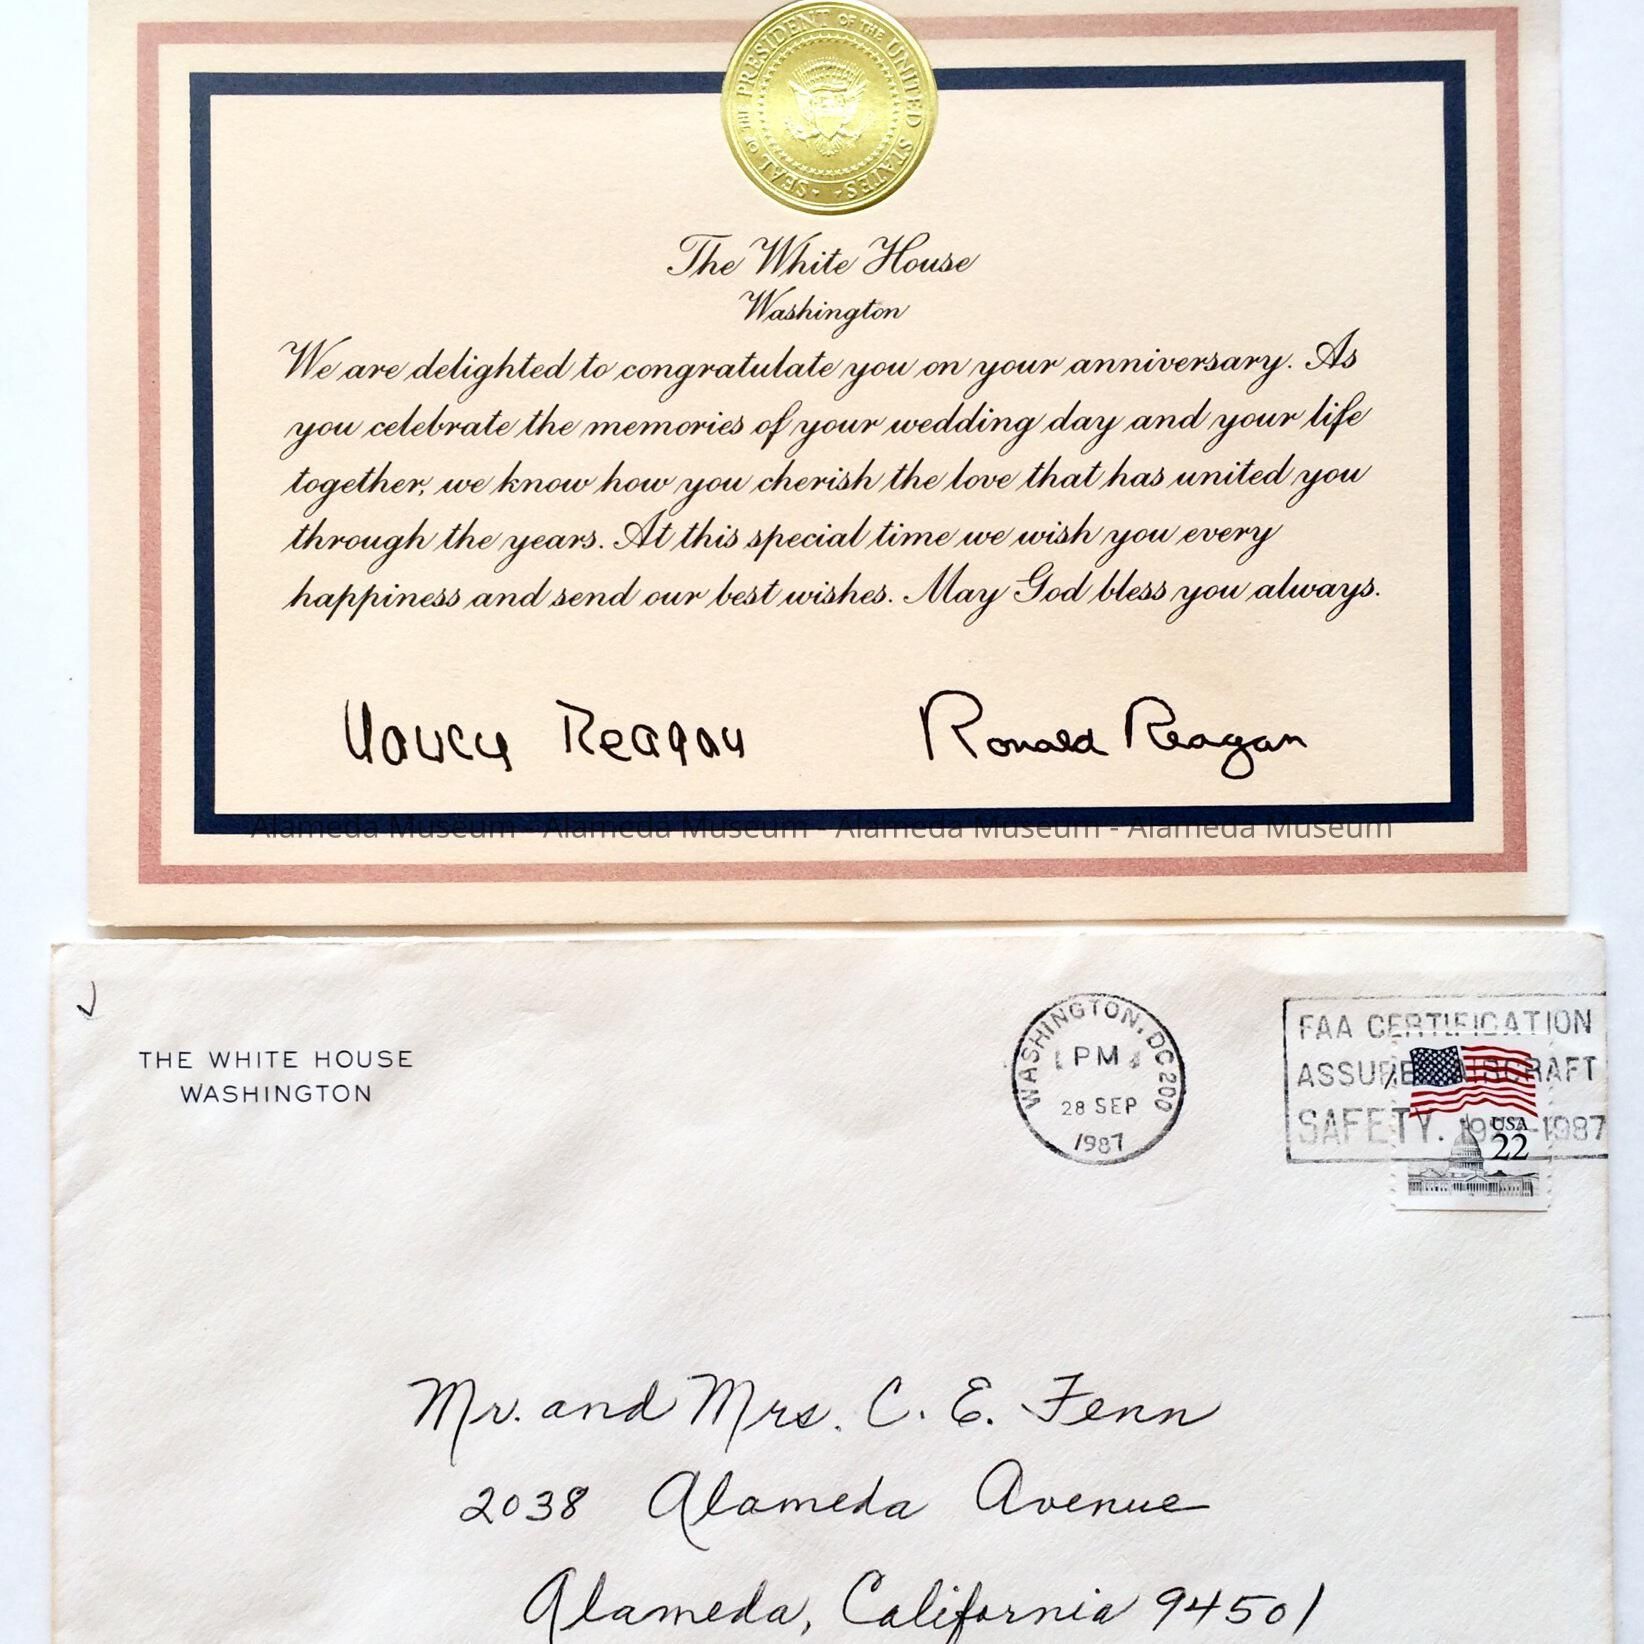 SEAL OF THE PRESIDENT OF THE UNITED STATES
The White House
Washington
We are delighted to congratulate you on your anniversary. As
you celebrate the memories of your wedding day and your life
together, we know how you cherish the love that has united you
through the years. At this special time we wish you every
happiness and send our best wishes. May God bless you always.
Nancy Reagan Ronald Reagan
Alameda Museum - Alameda Museum - Alameda Museum - Alameda Museum
THE WHITE HOUSE
WASHINGTON
WASHINGTON, DC 200
PM
28 SEP
1987
FAA CERTIFICATION
ASSURES AIRCRAFT
SAFETY. -1987
USA
22
Mr. and Mrs. C. E. Fenn
2038 Alameda Avenue
Alameda, California 94501